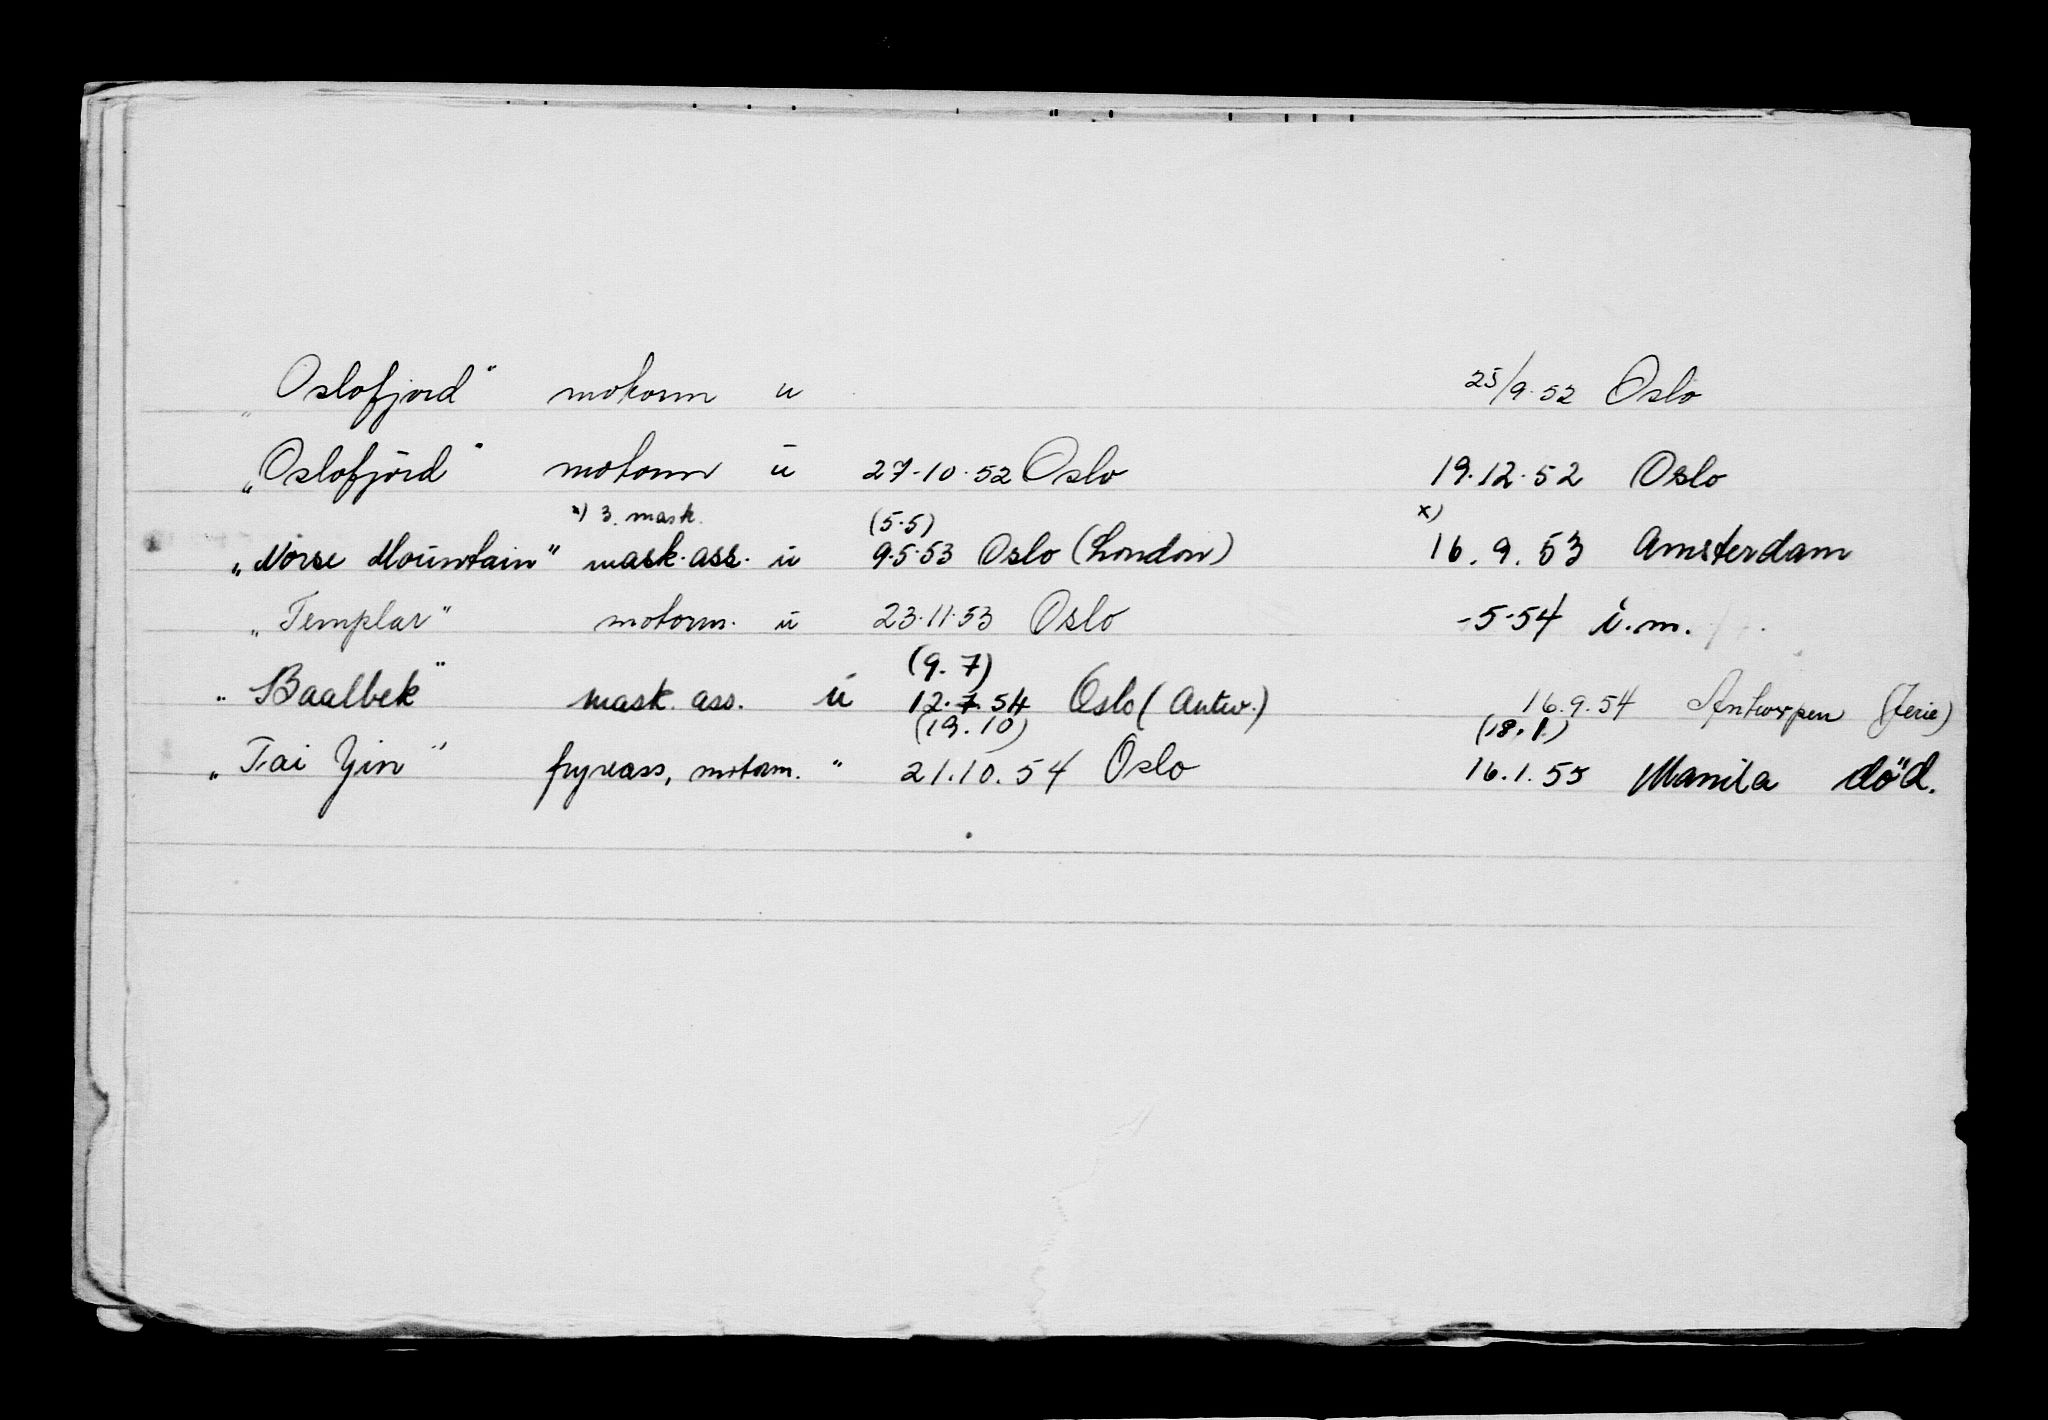 „Oslofjord" motorm u 25/9.52 Oslo
„Oslofjord" motorm u 27.10.52 Oslo 19.12.52 Oslo
x) 3. mask. (5.5) x)
„Norse Mountain" mask.ass. u 9.5.53 Oslo (London) 16.9.53 Amsterdam
„Templar" motorm. u 23.11.53 Oslo -5-54 i.m.
(9.7)
„Baalbek" mask. ass. u 12.7.54 Oslo (Antw.) 16.9.54 Antwerpen (ferie)
(19.10) (18.1)
„Tai Yin" fryseass, motorm. " 21.10.54 Oslo 16.1.55 Manila död.